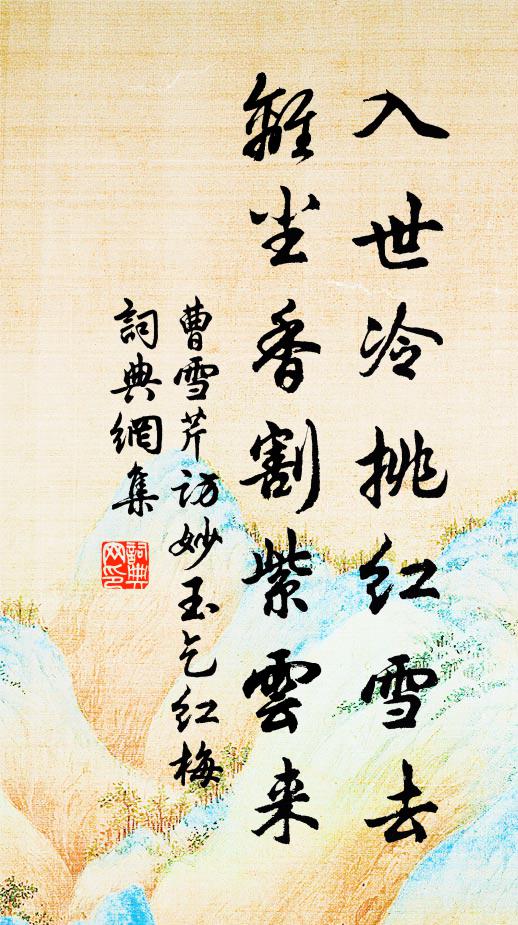 入世冷挑红雪去
離尘香割紫雲来
曹雪芹访妙玉乞红梅
詞典網集
詞典网印